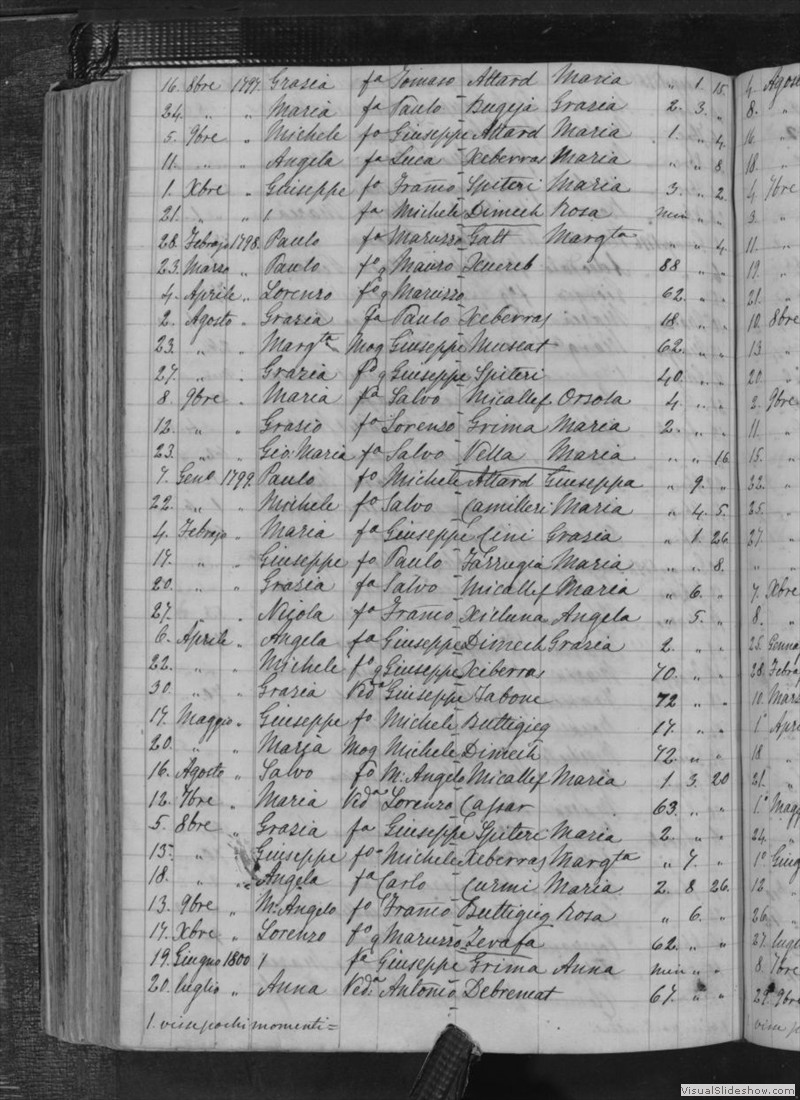 16. 8bre 1797. Grasia fa Tomaso Attard Maria " 1. 15.
24. " " Maria fa Paulo Bugeja Grasia 2. 3. "
5. 9bre " Michele fo Giuseppe Attard Maria 1. " 4.
11. " " Angela fa Luca Xeberras Maria " " 8.
1. Xbre " Giuseppe fo Franco Spiteri Maria 3. " 2.
21. " " 1 fa Michele Dimech Rosa min " "
28. Febrajo 1798. Paulo fa Maruzzo Galt Margta " " 4.
23. Marzo " Paulo fo g Mauro Xuereb 88 " "
4. Aprile " Lorenzo fo g Maruzzo 62. " "
2. Agosto " Grazia fa Paulo Xeberras 18. " "
23. " " Margta Mog Giuseppe Muscat 62. " "
27. " " Grazia fa g Giuseppe Spiteri 40. " "
8. 9bre " Maria fa Salvo Micallef Orsola 4. " "
12. " " Grasio fo Lorenzo Grima Maria 2. " "
23. " " Gio Maria fa Salvo Vella Maria " " 16.
7. Geno 1799. Paulo fo Michele Attard Giuseppa " 9. "
22. " " Michele fo Salvo Camilleri Maria " 4. 5.
4. Febrajo " Maria fa Giuseppe Cini Grasia " 1. 26.
17. " " Giuseppe fo Paulo Farrugia Maria " " 8.
20. " " Grasia fa Salvo Micallef Maria " 6. "
27. " " Nicola fo Franco Xicluna Angela " 5. "
6. Aprile " Angela fa Giuseppe Dimech Grazia 2. " "
22. " " Michele fo g Giuseppe Xeberras 70. " "
30. " " Grazia Veda Giuseppe Tabone 72 " "
17. Maggio " Giuseppe fo Michele Buttigieg 17. " "
20. " " Maria Mog Michele Dimech 72. " "
16. Agosto " Salvo fo M. Angelo Micallef Maria 1 3. 20
12. 7bre " Maria Veda Lorenzo Cassar 63. " "
5. 8bre " Grasia fa Giuseppe Spiteri Maria 2. " "
15. " " Giuseppe fo Michele Xeberras Margta " 7. "
18. " " Angela fa Carlo Curmi Maria 2. 8 26.
13. 9bre " M. Angelo fo Franco Buttigieg Rosa " 6. "
17. Xbre " Lorenzo fo g Maruzzo Zevafa 62. " "
19. Giugno 1800 1 fa Giuseppe Grima Anna min " "
20. luglio " Anna Veda Antonio Debremat 67. " "
1. visse pochi momenti =
4. Agost
8. "
16. "
18. "
4 7bre
3. "
11. "
19. "
21. "
10. 8bre
13. "
20. "
2. 9bre
11. "
15. "
22. "
25. "
27. "
" "
7. Xbre
8. "
25. Genna
28. Febra
10. Mars
1° Apri
18 "
21 "
1° Magg
24. "
1° Giug
12 "
26. "
27. lugli
8. 7bre
29. 9bre
visse p
VisualSlideshow.com